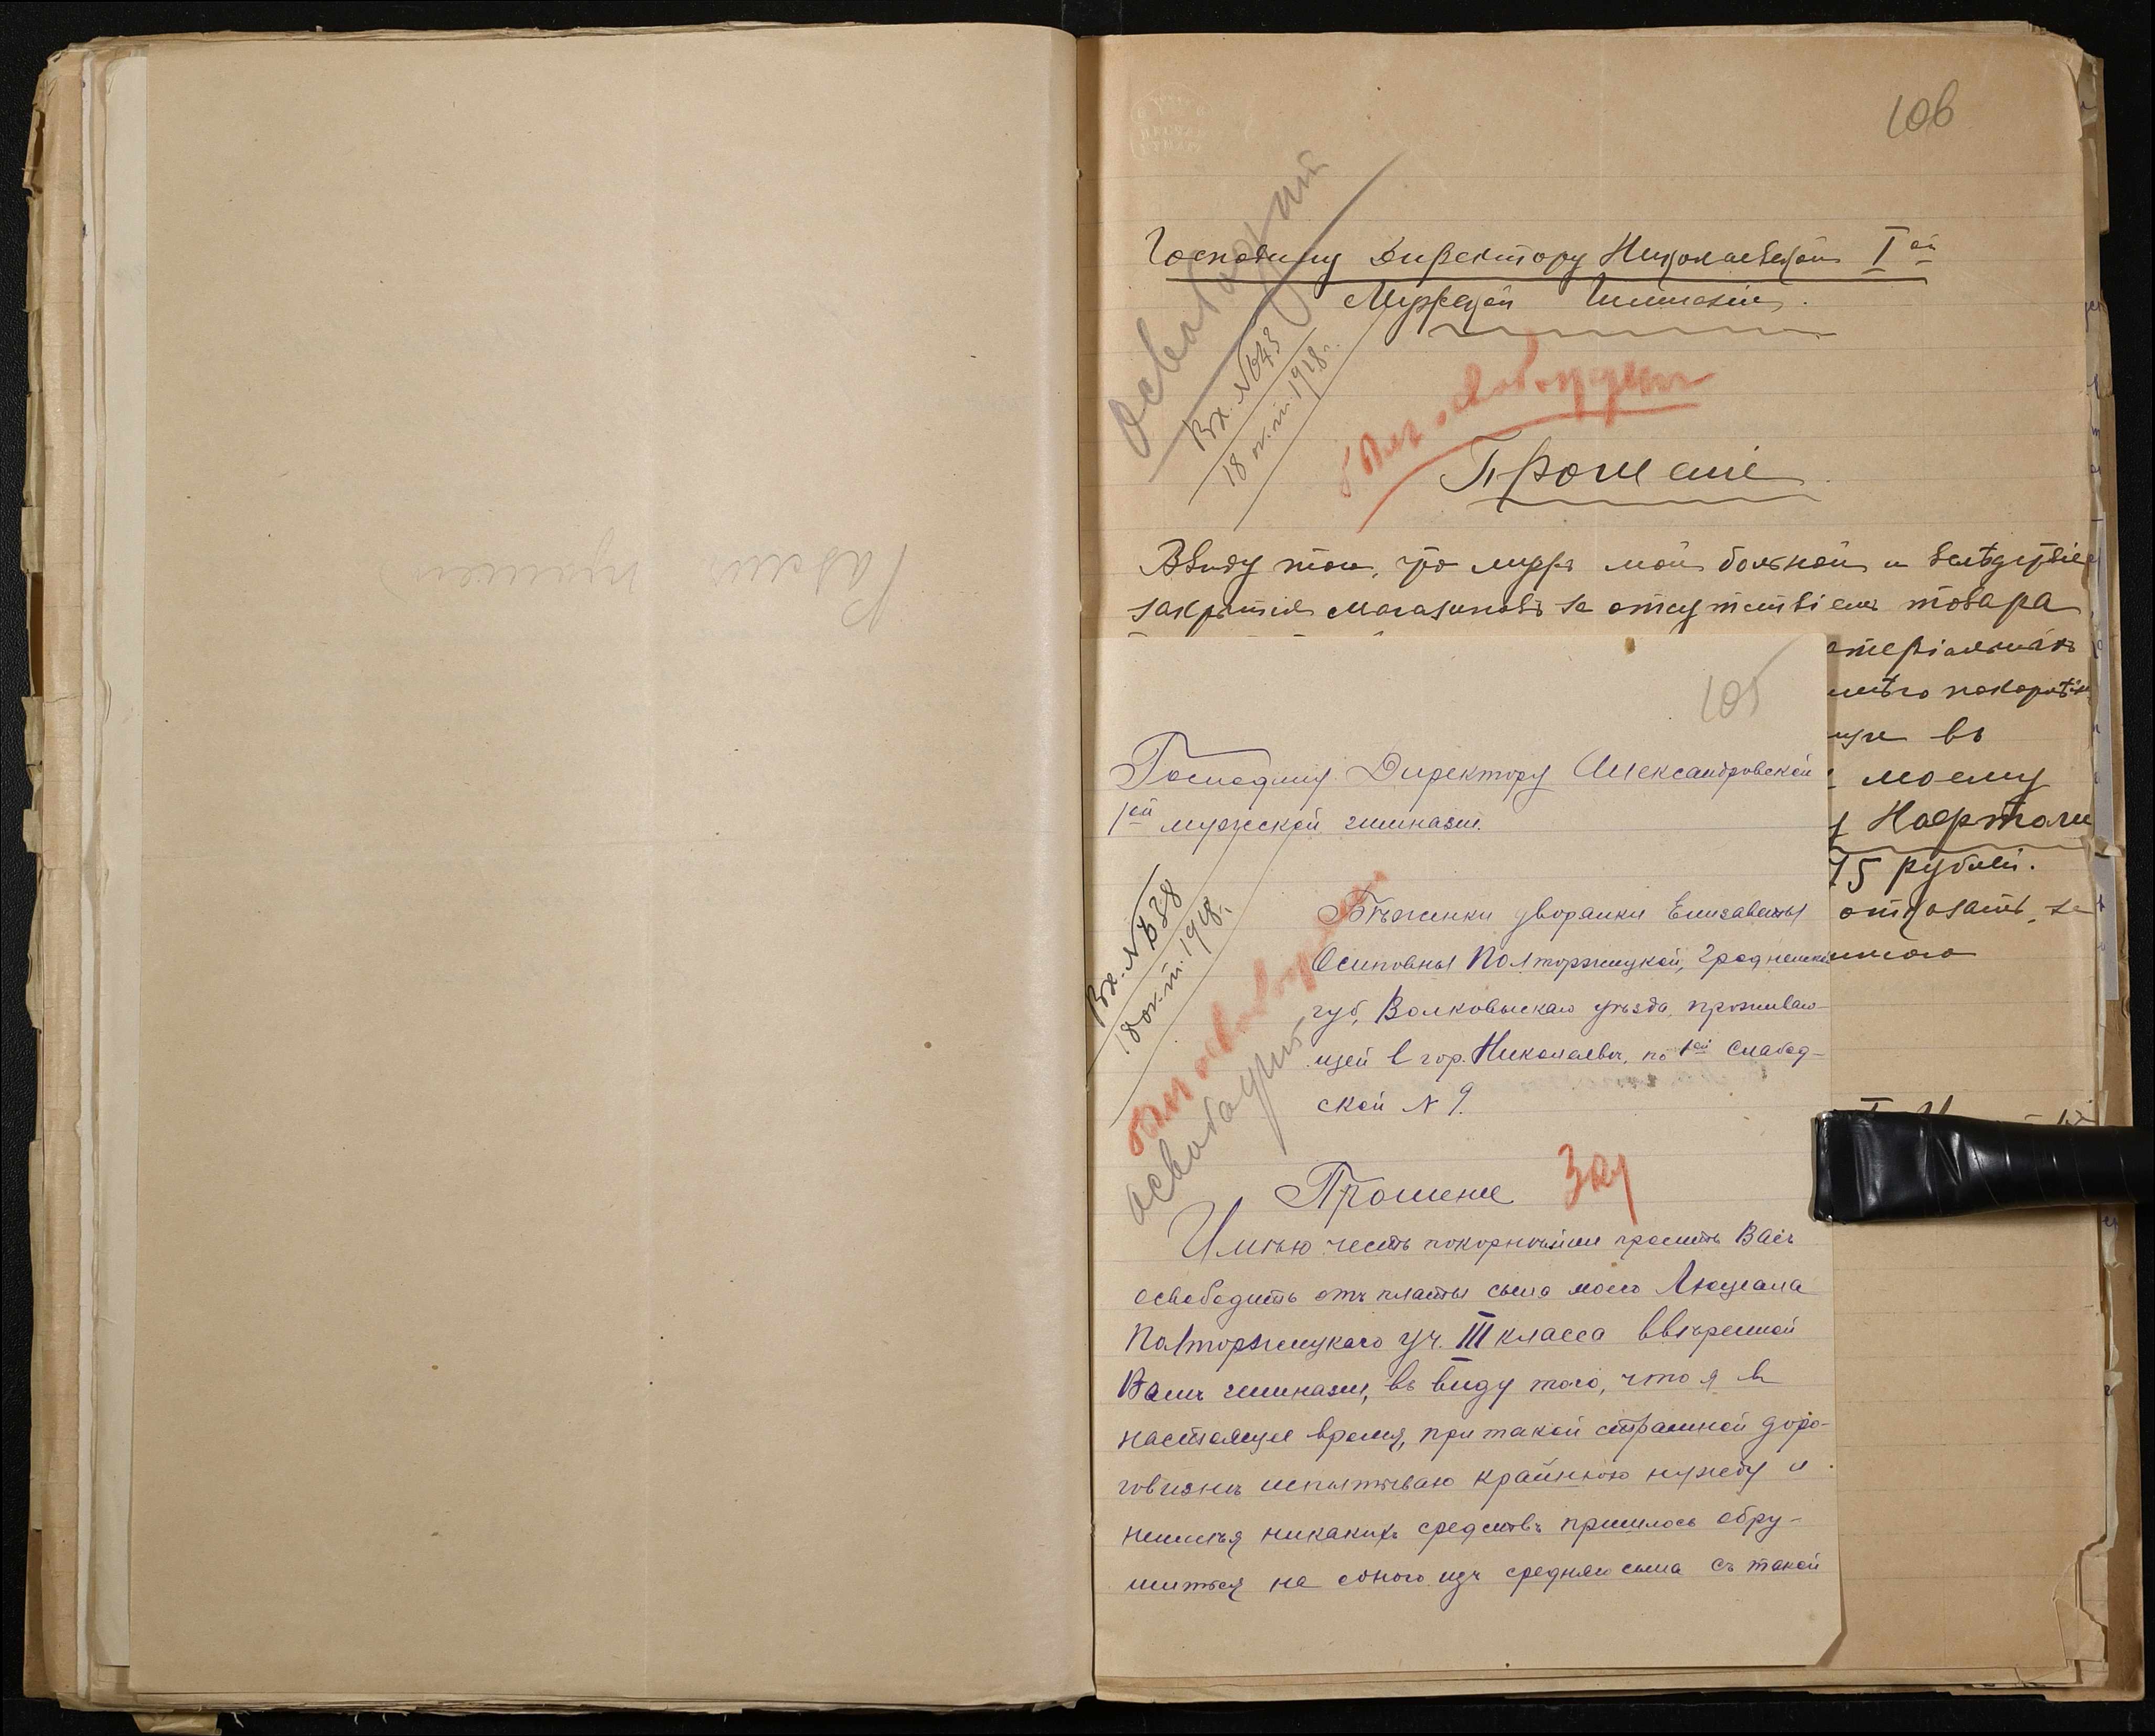 106
Господину Директору Николаевской Iой
Мужской Гимназіи.
Освободить
Вх. №643
18 1918 г.
Прошеніе
Ввиду того, что мужъ мой больной и вслѣдствіе
закрытія магазиновъ за отсутствіемъ товара
атеріальнахъ
моему
Нафтали
75 рублей.
отказать, за
105
Господину Директору Александровской
1ой мужской гимназіи.
Вх. №638
18 1918 г.
Бѣженки дворянки Елизаветы
Осиповны Полторжицкой, Гродненской
губ, Волковыскаго уѣзда, проживаю-
щей в гор. Николаевѣ, по 1ой Слабод-
ской № 9.
освободить
Прошеніе
Имѣю честь покорнѣйше просить Васъ
освободить отъ платы сына моего Люціана
Полторжицкаго уч. III класса ввѣренной
Вамъ гимназіи, въ виду того, что я въ
настоящее время, при такой страшной доро-
говизнѣ испытываю крайнюю нужду и
неимѣя никакихъ средствъ пришлось обру-
шиться на одного изъ средняго сына съ такой